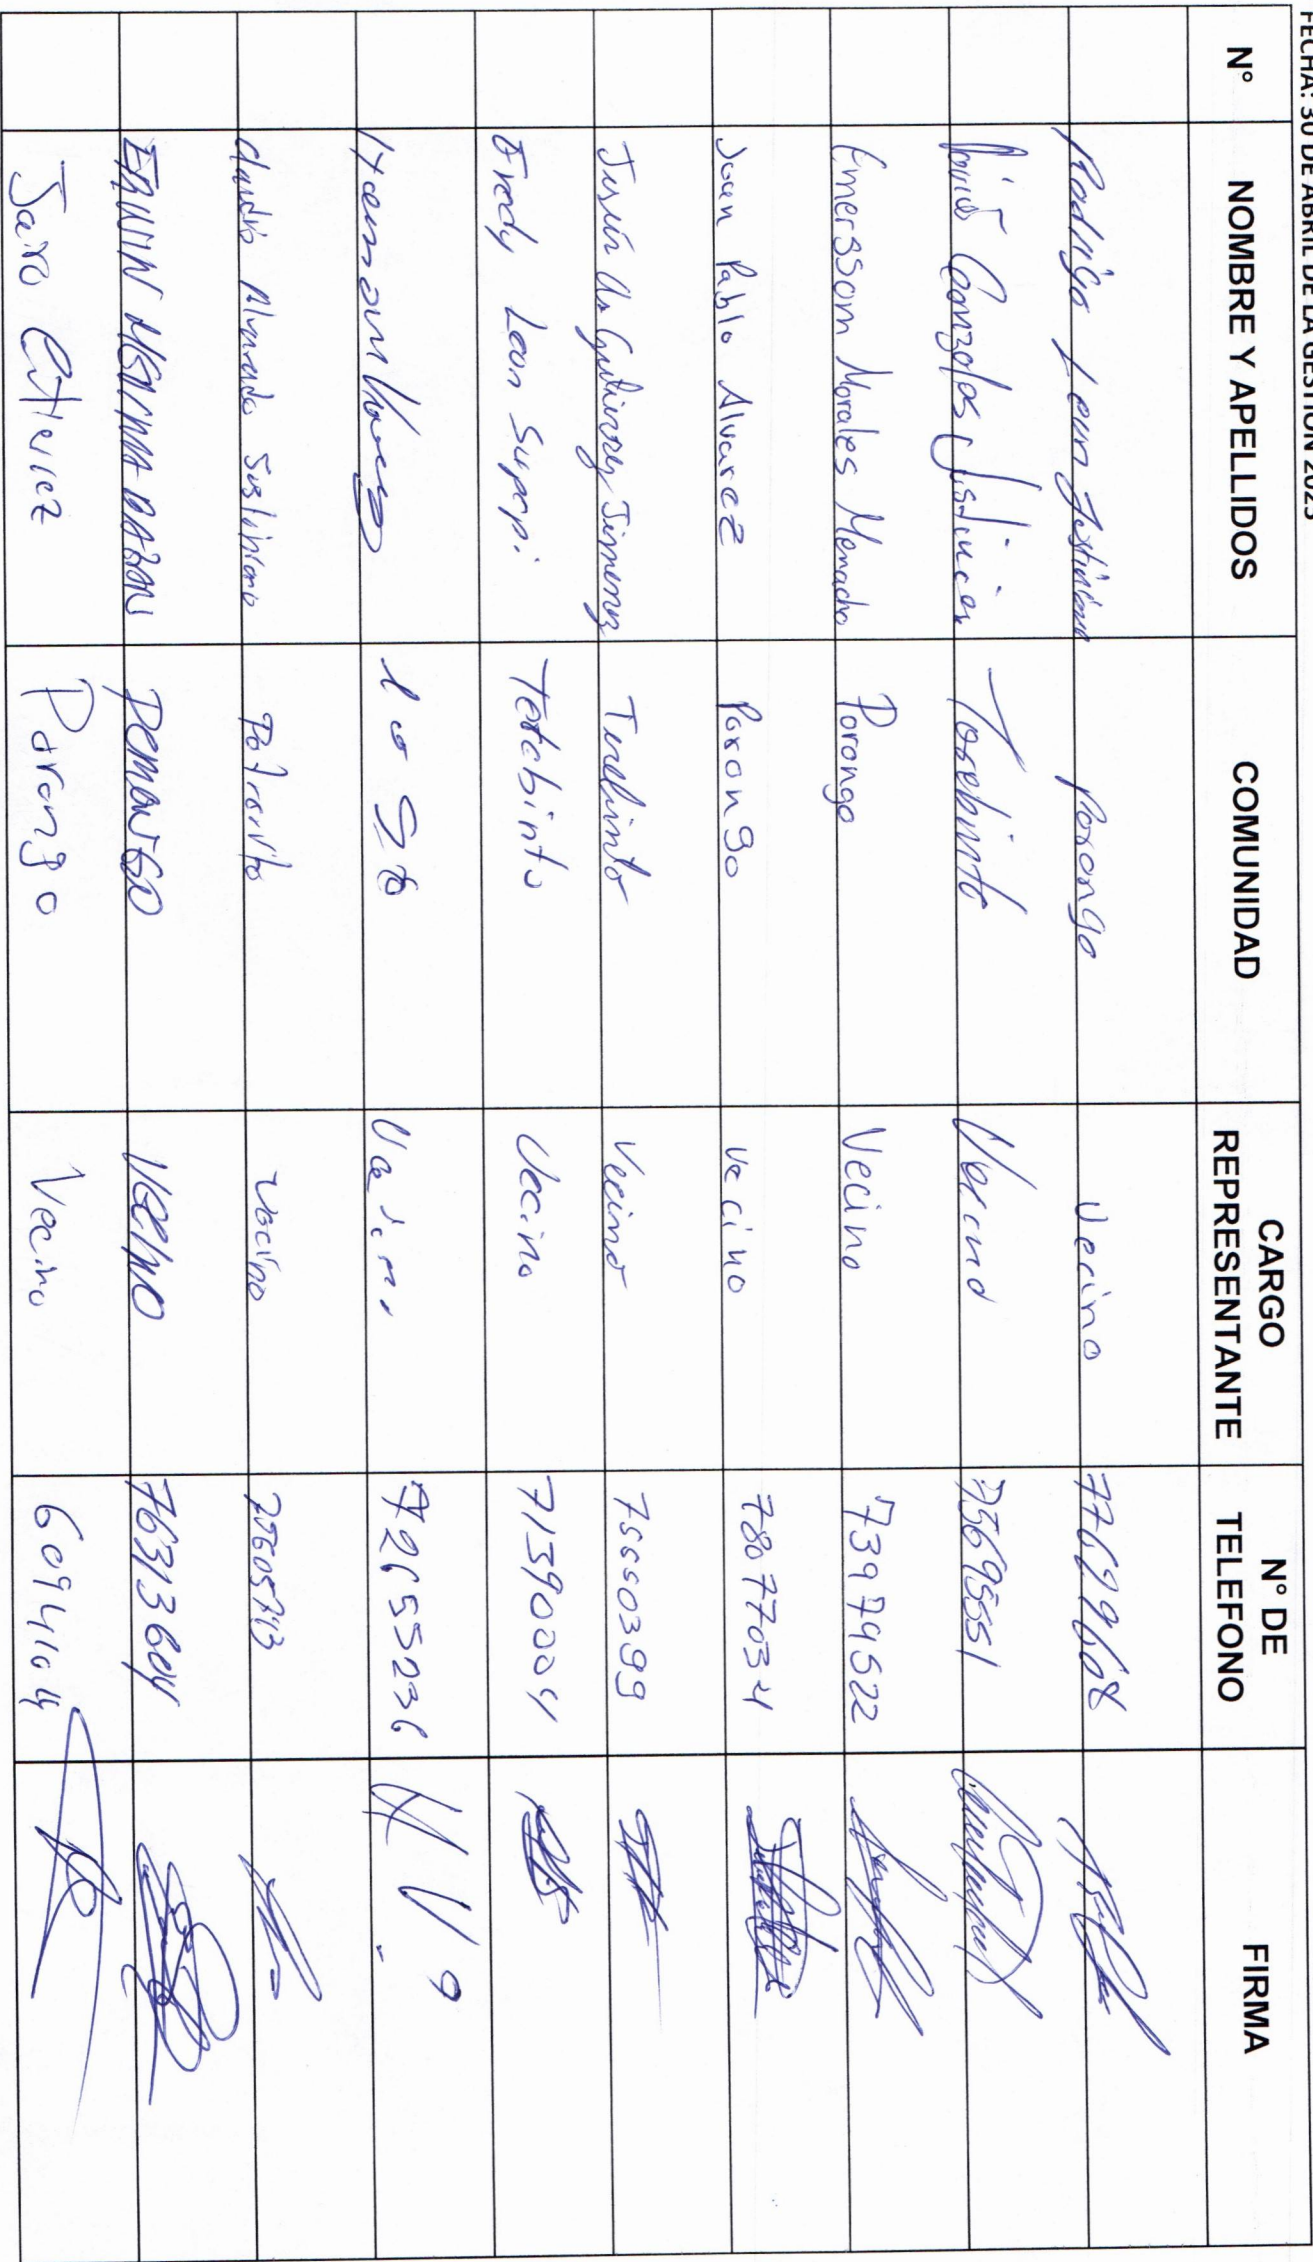 FECHA: 30 DE ABRIL DE LA GESTION 2025
N° NOMBRE Y APELLIDOS COMUNIDAD CARGO REPRESENTANTE N° DE TELEFONO FIRMA
Rodrigo Leon Justiniano Porongo Vecino 77699668
David Gonzales Justiniano Terebinto Vecino 73695551
Emerssom Morales Menacho Porongo Vecino 73979522
Juan Pablo Alvarez Porongo Vecino 78077034
Gutierrez Jimenez Terebinto Vecino 75550399
Fredy Leon Surupi Terebinto Vecino 71390004
Vecino 72655236 H V 9
Alvarado Sustiniano Potrerito vecino 75605713
ERWIN MEDINA BAZAN PORONGO VECINO 76313604
Jairo Gutierrez Porongo Vecino 60941104